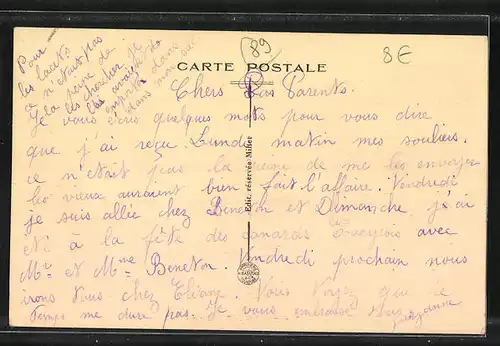 Pour
les lacets
ce n'était pas
la peine de
les chercher je
les avais
emporté dans
dans mon sac
89
8€
CARTE POSTALE
Chers Parents.
Je vous écris quelques mots pour vous dire
que j'ai reçu Lundi matin mes souliers.
ce n'était pas la peine de me les envoyer
les vieux auraient bien fait l'affaire. Vendredi
je suis allée chez Beneton et Dimanche j'ai
été à la fête des canards avec
Mr et Mme Beneton. Vendredi prochain nous
irons tous chez Vous voyez que le
temps me dure pas. Je vous embrasse
Suzanne
Edit. réservés Millet